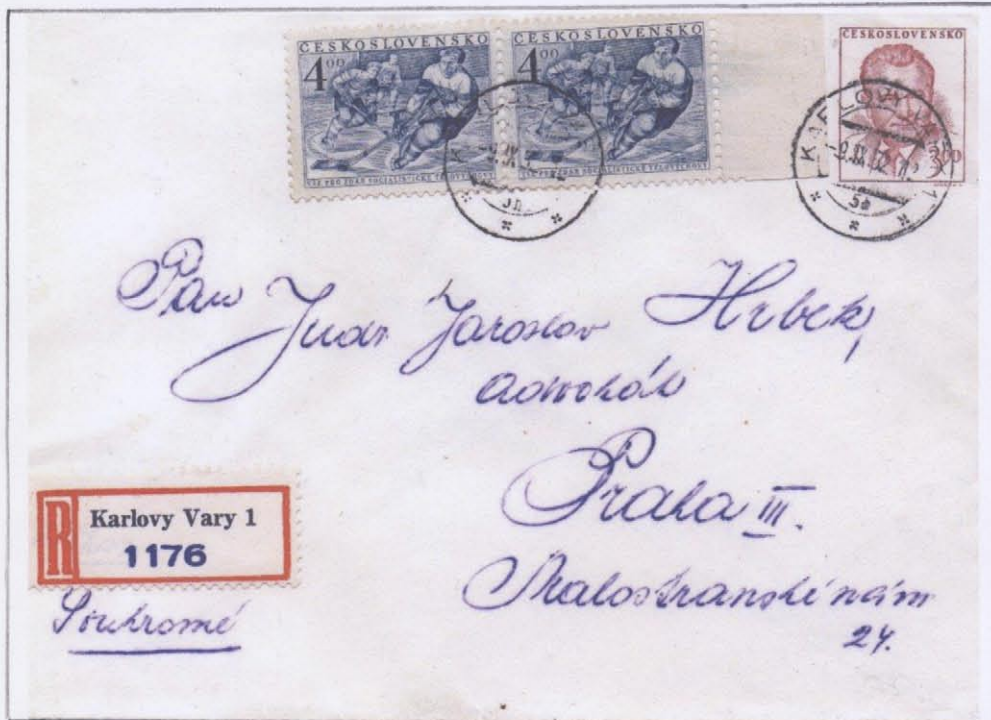 ČESKOSLOVENSKO ČESKOSLOVENSKO ČESKOSLOVENSKO
4 00 4 00
3,00
KARLOVY VARY
5a
Pan
Judr Jaroslav Hrbek,
advokát
Praha III.
Malostranské nám
24.
R Karlovy Vary 1
1176
Soukromé